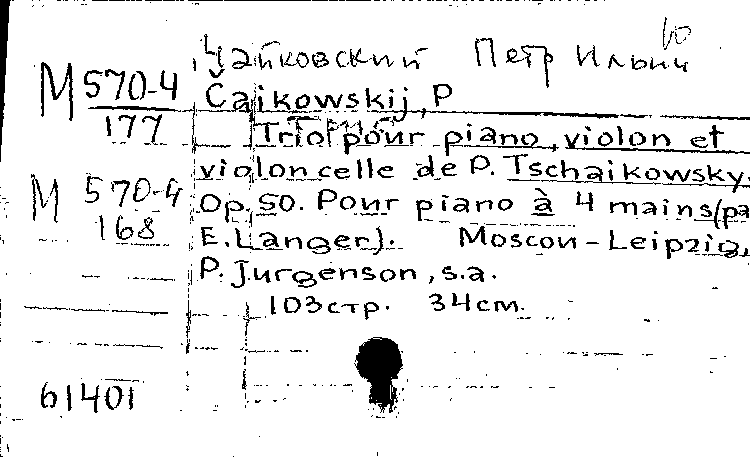 Чайковский Петр Ильич
М 570-4
177
Čaikowskij, P
Trio pour piano, violon et
violoncelle de P. Tschaikowsky.
М 570-4
168
Op. 50. Pour piano à 4 mains (pa
E. Langer). Moscou - Leipzig,
P. Jurgenson, s.a.
103 стр. 34 см.
61401